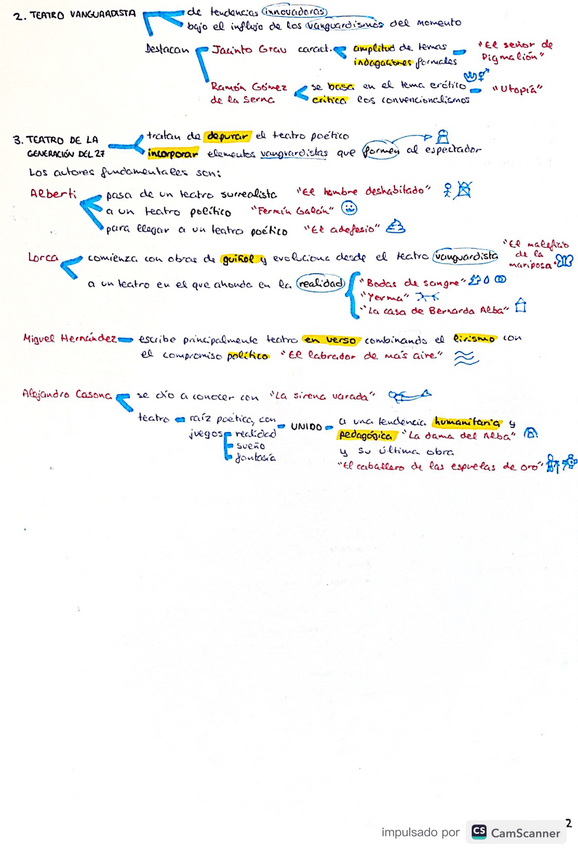 2. TEATRO VANGUARDISTA
de tendencias innovadoras
bajo el influjo de los vanguardismos del momento
Destacan
Jacinto Grau caract.
amplitud de temas
indagaciones formales
"El señor de
Pigmalión"
Ramón Gómez
de la Serna
se basa en el tema erótico
critica los convencionalismos
"Utopía"
3. TEATRO DE LA
GENERACIÓN DEL 27
tratan de depurar el teatro poético
incorporar elementos vanguardistas que formen al espectador
Los autores fundamentales son:
Alberti
pasa de un teatro surrealista "El hombre deshabitado"
a un teatro político "Fermín Galán"
para llegar a un teatro poético "El adefesio"
Lorca
comienza con obras de guiñol y evoluciona desde el teatro vanguardista
"El maleficio
de la
mariposa"
a un teatro en el que ahonda en la realidad
"Bodas de sangre"
"Yerma"
"La casa de Bernarda Alba"
Miguel Hernández
escribe principalmente teatro en verso combinando el lirismo con
el compromiso político "El labrador de más aire"
Alejandro Casona
se dio a conocer con "La sirena varada"
teatro
raíz poética, con
juegos
realidad
sueño
fantasía
UNIDO
a una tendencia humanitaria y
pedagógica "La dama del Alba"
y su última obra
"El caballero de las espuelas de oro"
2
impulsado por CS CamScanner